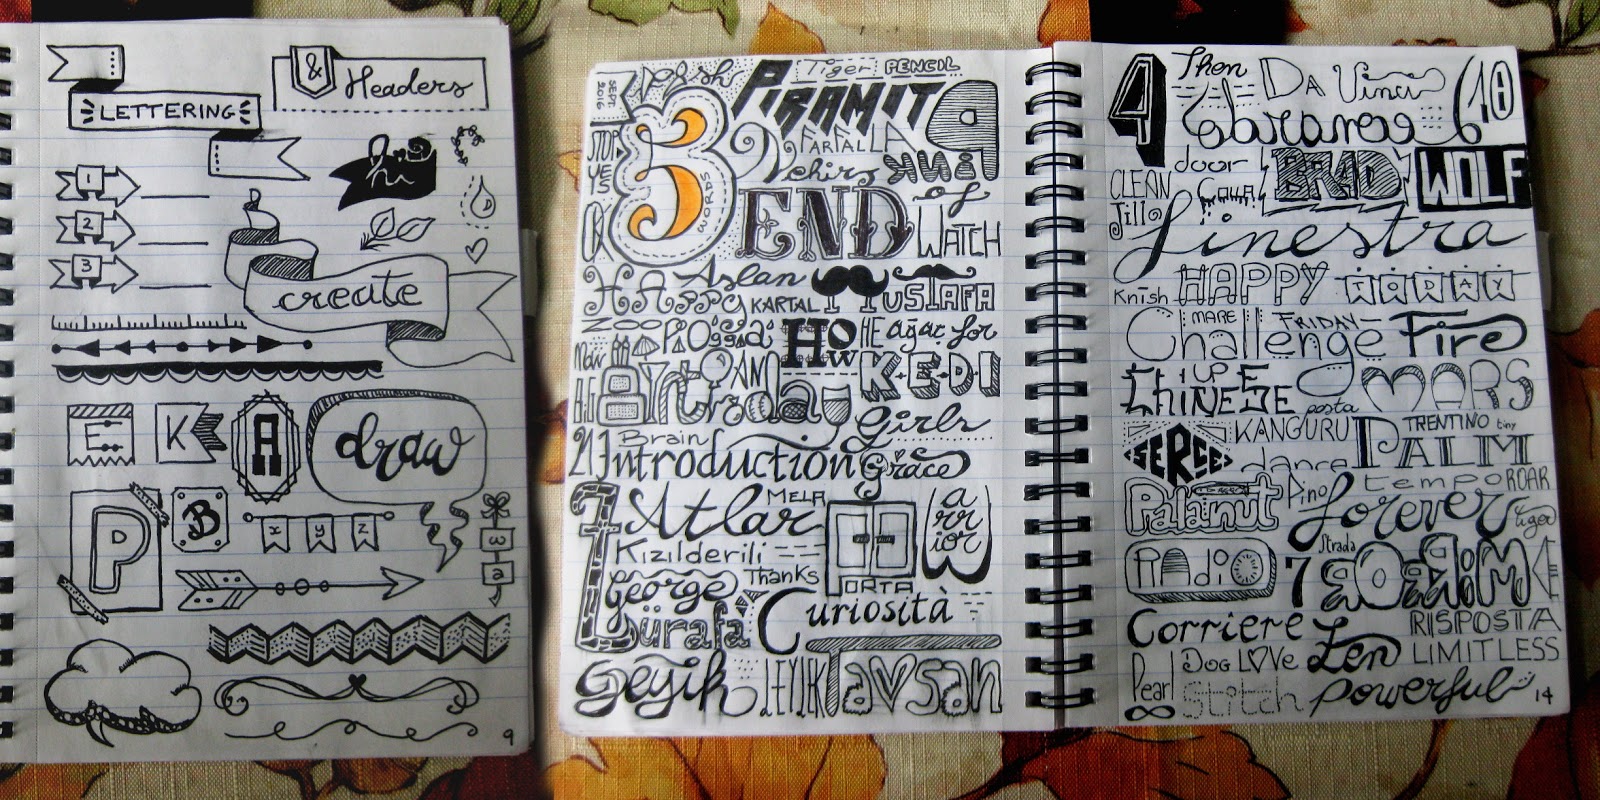 LETTERING
& Headers
hi
1
2
3
create
E K A draw
P B x y z
w
a
9
SEPT 2016
Tiger PENCIL
PIRAMIT
FARFALLA
STOP
YES
WORDS
END
of
WATCH
HAppy
Aslan
KARTAL
MUSTAFA
Zoo
Pioggia
How
HE
ağaç for
BIG
AM
K.E.D.I
Girls
21
Brain
Introduction
Grace
Atlar
MELA
Warrior
Kızılderili
George
Thanks
PORTA
Zürafa
Curiosità
geyik
LEYLEK
Tavşan
4
Then
DA Vinci
10
door
BRAD
WOLF
CLEAN
Jill
Finestra
Knish
HAPPY
TODAY
MARE
FRIDAY
Challenge
Fire
UP
CHINESE
posta
MARS
SERCE
KANGURU
TRENTINO tiny
PALM
danca
tempo
ROAR
Pino
Forever
Tiger
RADIO
Strada
7
Corriere
Zen
RISPOSTA
Pearl
DOG LOVE
LIMITLESS
∞
Stitch
powerful
14